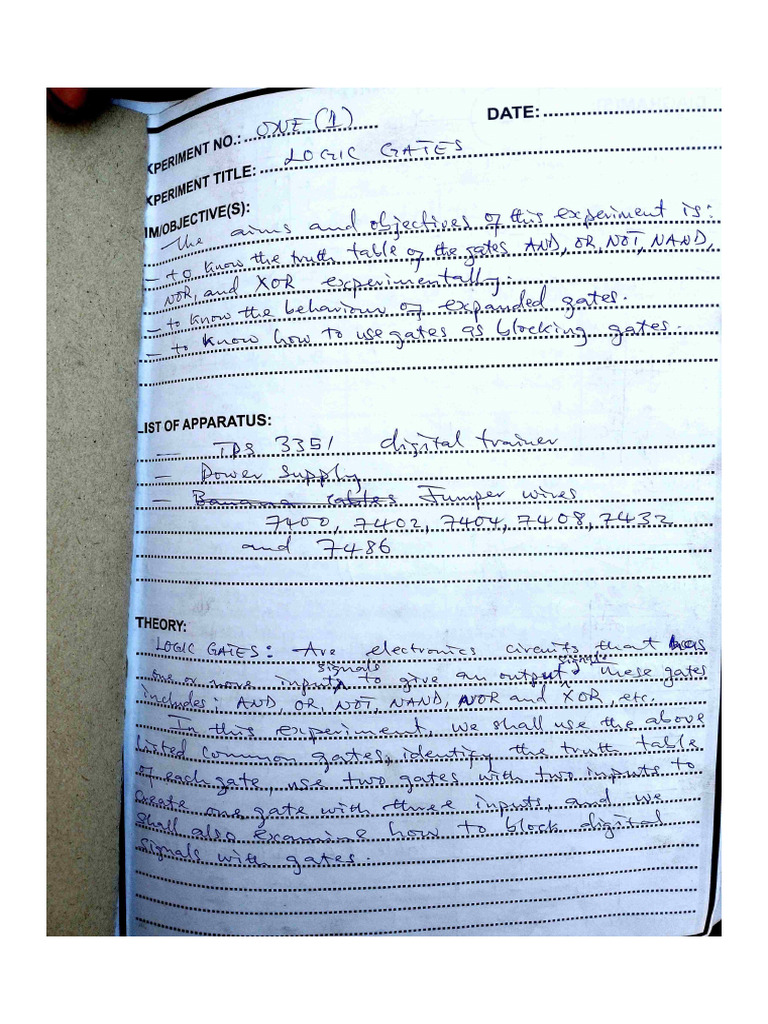 DATE:
XPERIMENT NO.: ONE (1)
XPERIMENT TITLE: LOGIC GATES
IM/OBJECTIVE(S):
the aims and objectives of this experiment is:
- to know the truth table of the gates AND, OR, NOT, NAND,
NOR, and XOR experimentally.
- to know the behaviour of expanded gates.
- to know how to use gates as blocking gates.
LIST OF APPARATUS:
- TPS 3351 digital trainer
- Power Supply
- Banana cables Jumper wires
7400, 7402, 7404, 7408, 7432
and 7486
THEORY:
LOGIC GATES: Are electronics circuits that has
one or more inputs signals to give an output signals. These gates
includes: AND, OR, NOT, NAND, NOR and XOR, etc.
In this experiment, we shall use the above
listed common gates, identify the truth table
of each gate, use two gates with two inputs to
create one gate with three inputs, and we
shall also examine how to block digital
signals with gates.